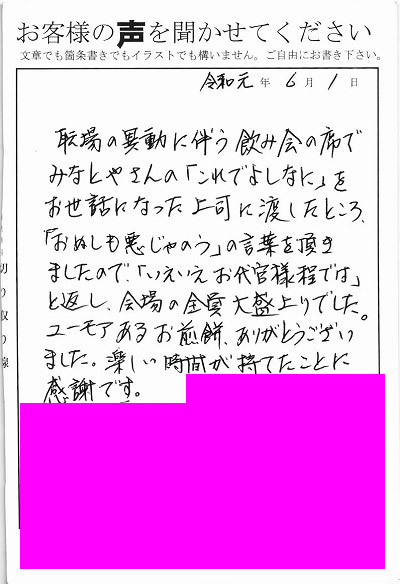 お客様の声を聞かせてください
文章でも箇条書きでもイラストでも構いません。ご自由にお書き下さい。
令和元年6月1日
職場の異動に伴う飲み会の席で
みなとやさんの「これでよしなに」を
お世話になった上司に渡したところ、
「おぬしも悪じゃのう」の言葉を頂き
ましたので、「いえいえお代官様程では」
と返し、会場の全員大盛上りでした。
ユーモアあるお煎餅、ありがとうござい
ました。楽しい時間が持てたことに
感謝です。
切り取り線